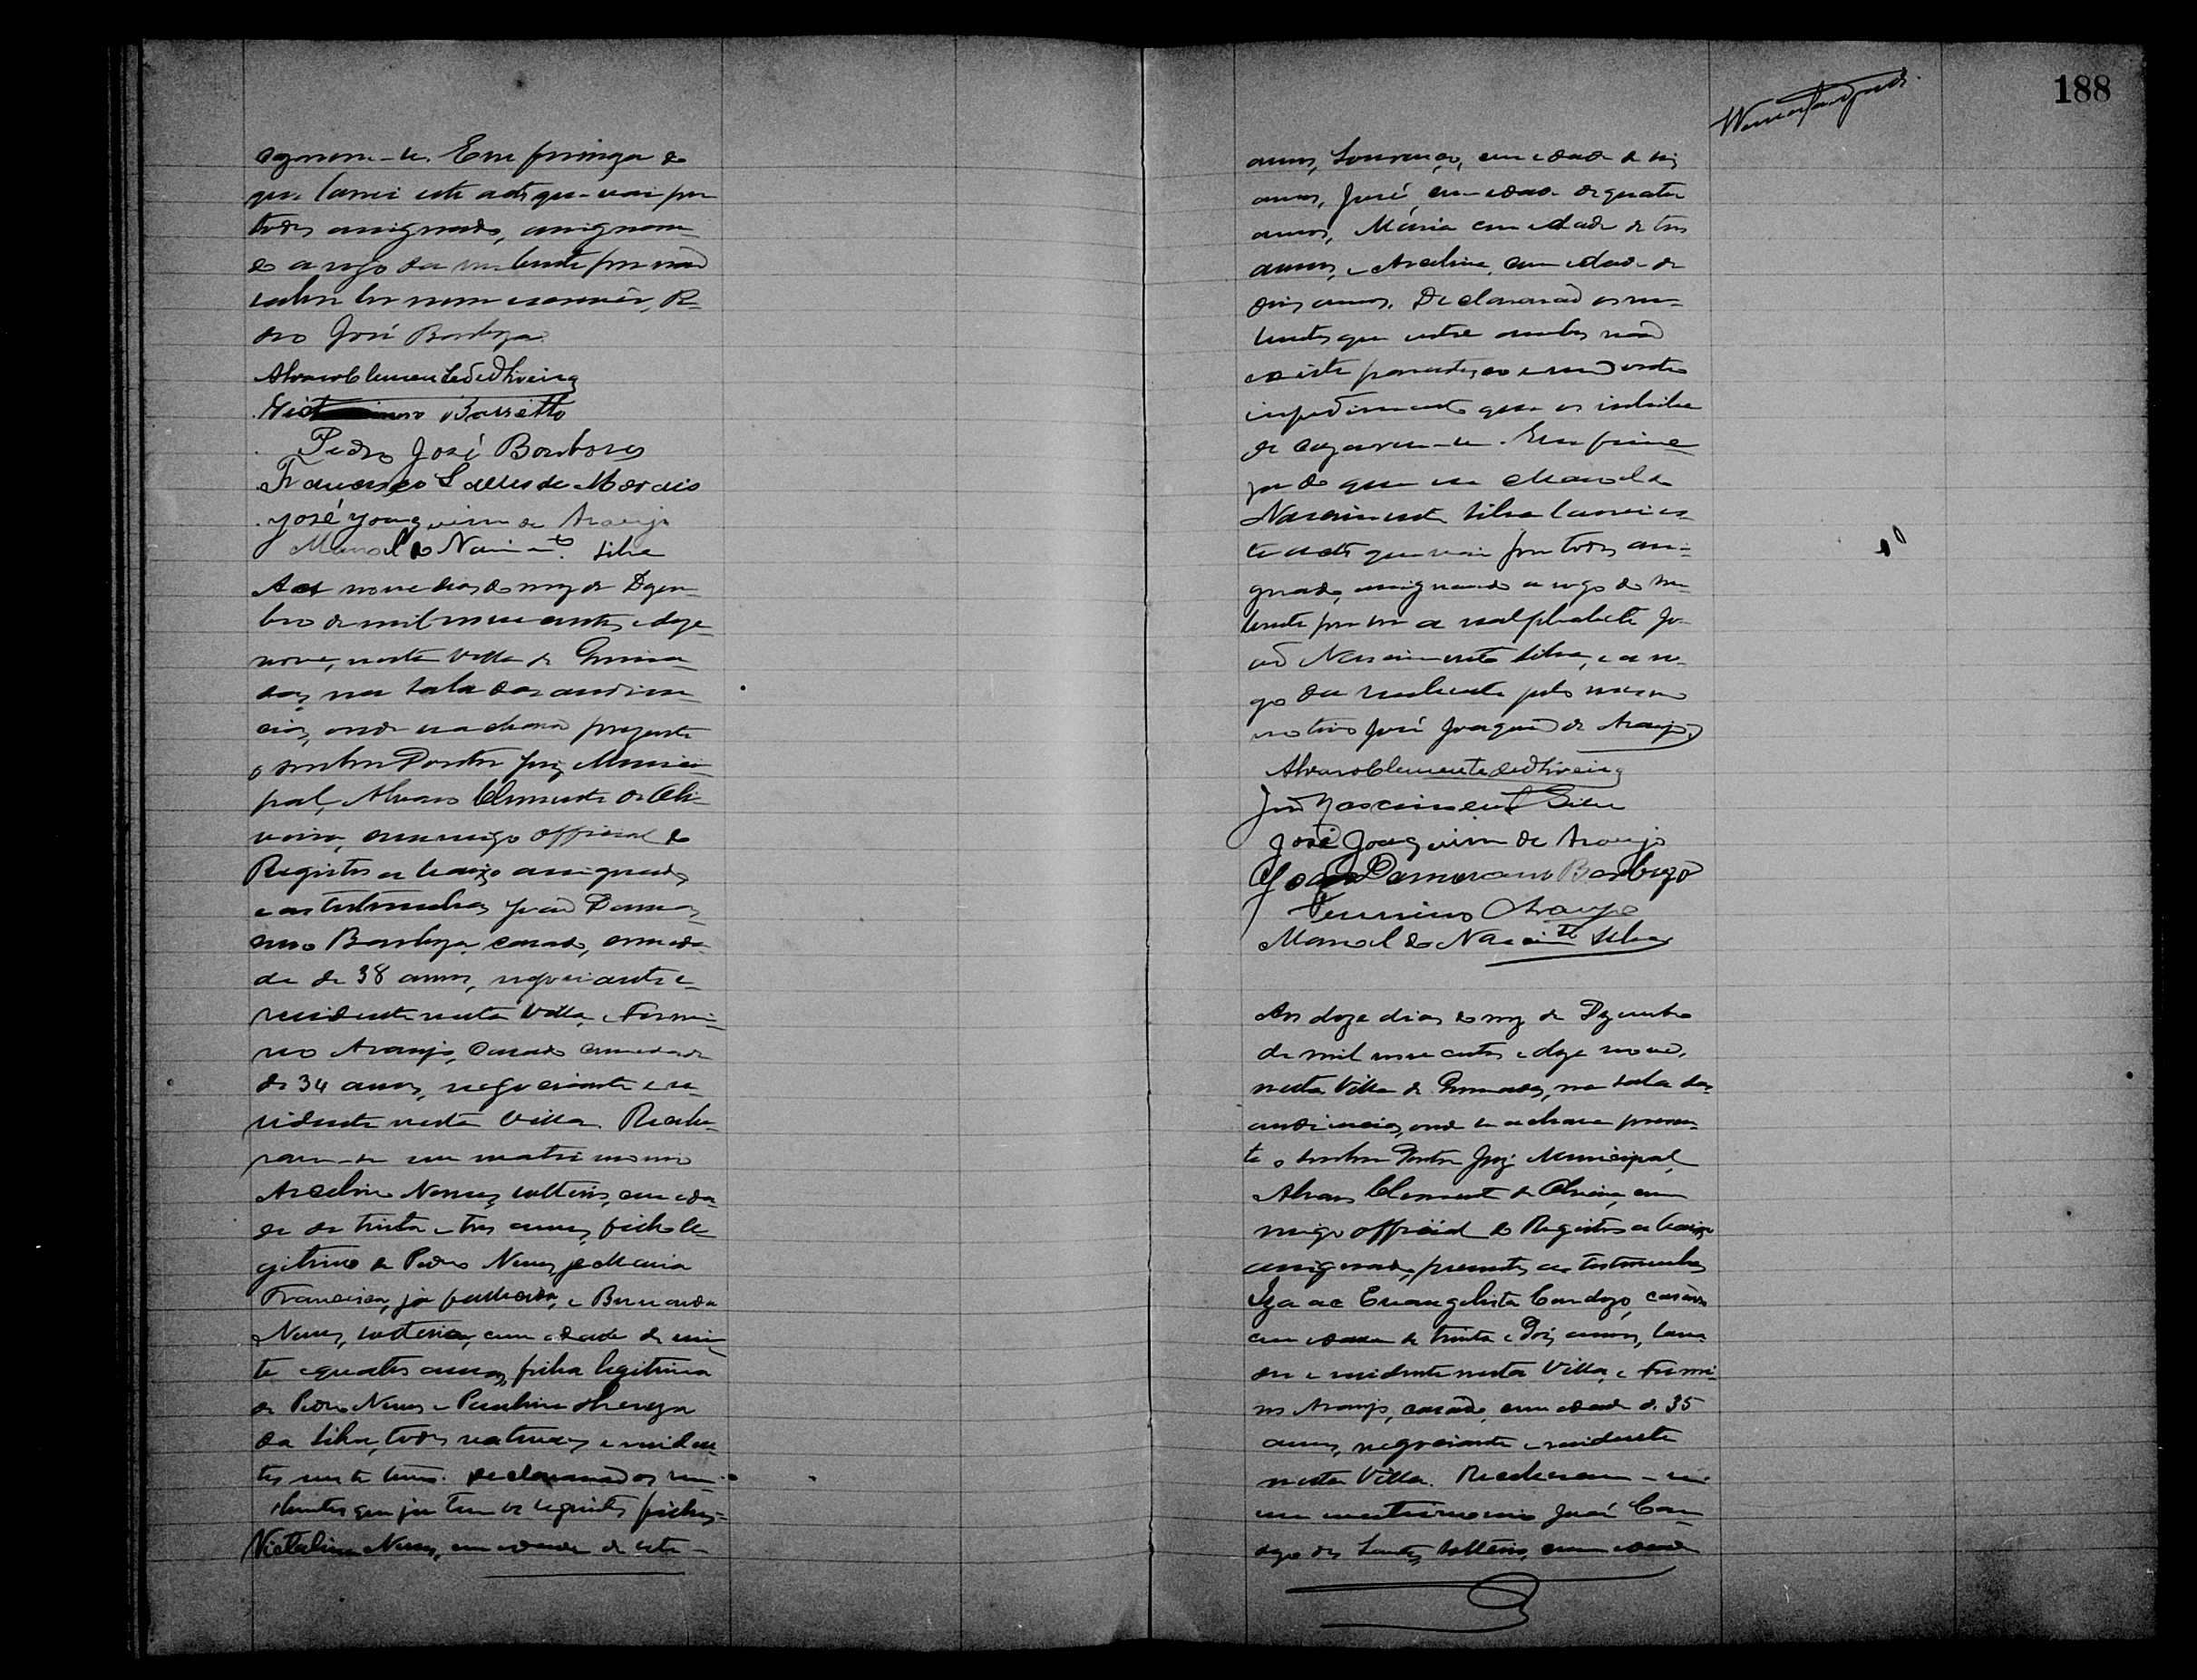 zarem-se. Em firmeza do
que lavrei este acto que vai por
todos assignado, assignan-
do a rogo da nubente por não
saber ler nem escrever, Pe-
dro José Barboza.
Alvaro Clemente de Oliveira
Barretto
Pedro José Barboza
Francisco Salles de Moraes
José Joaquim de Araujo
Manoel do Nascim.to Silva
Aos nove dias do mez de Dezem-
bro de mil novecentos e deze-
nove, nesta Villa de
das, na sala das audien-
cias, onde se achava prezente
o senhor Doutor Juiz Munici-
pal, Alvaro Clemente de Oli-
veira, commigo official do
Registro abaixo assignado,
e as testemunhas João Damas-
ceno Barboza, casado, com ida-
de de 38 annos, negociante e
residente nesta Villa, e Firmi-
no Araujo, casado com idade
de 34 annos, negociante e re-
sidente nesta Villa. Recebe-
ram-se em matrimonio
Arcelino Nunes, solteiro, com ida-
de de trinta e tres annos, filho le-
gitimo de Pedro Nunes, e Maria
Francisca, já fallecida, e Bernarda
Nunes, solteira, com idade de vin-
te e quatro annos, filha legitima
de Pedro Nunes e Paulina
da Silva, todos naturaes e residen-
tes neste termo. Declararão os nu-
bentes que já tem os seguintes filhos=
Victalina Nunes, com idade de sete
188
annos, Lourenço, com idade de seis
annos, José, com idade de quatro
annos, Maria com idade de tres
annos, e Arcelina, com idade de
dois annos. Declararão os nu-
bentes que entre ambos não
existe parentesco e nem outro
impedimento que os inhiba
de cazarem-se. Em firme-
za do que eu Manoel do
Nascimento Silva lavrei es-
te acto que vai por todos assi-
gnado, assignando a rogo do nu-
bente por ser analphabeto Jo-
ão Nascimento Silva, e a ro-
go da nubente pelo mesmo
motivo José Joaquim de Araujo.
Alvaro Clemente de Oliveira
João Nascimento Silva
José Joaquim de Araujo
João Damasceno Barboza
Firmino Araujo
Manoel do Nascim.to Silva
Aos doze dias do mez de Dezembro
de mil novecentos e deze nove,
nesta Villa de, na sala das
audiencias, onde se achava presen-
te o senhor Doutor Juiz Municipal,
Alvaro Clemente de Oliveira, com-
migo official do Registro abaixo
assignado, presentes as testemunhas
Izaac Evangelista Cardozo, casado
com idade de trinta e dois annos, lavra-
dor e residente nesta Villa, e Firmi-
no Araujo, casado, com idade de 35
annos, negociante e residente
nesta Villa. Receberam-se
em matrimonio José Car-
dozo dos Santos, solteiro, com idade